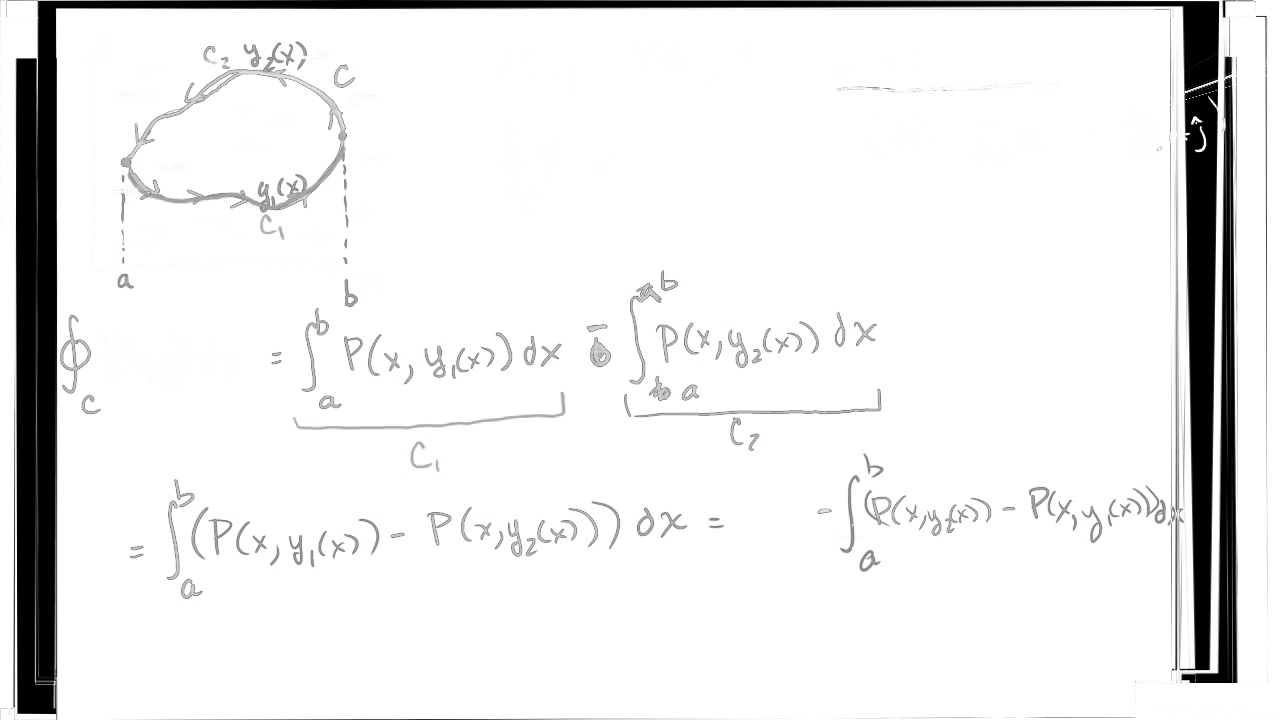 C₂ y₂(x) C
y₁(x)
C₁
a b
∮_C = ∫_a^b P(x, y₁(x)) dx - ∫_a^b P(x, y₂(x)) dx
C₁ C₂
= ∫_a^b (P(x, y₁(x)) - P(x, y₂(x))) dx = - ∫_a^b (P(x, y₂(x)) - P(x, y₁(x))) dx
+ ĵ